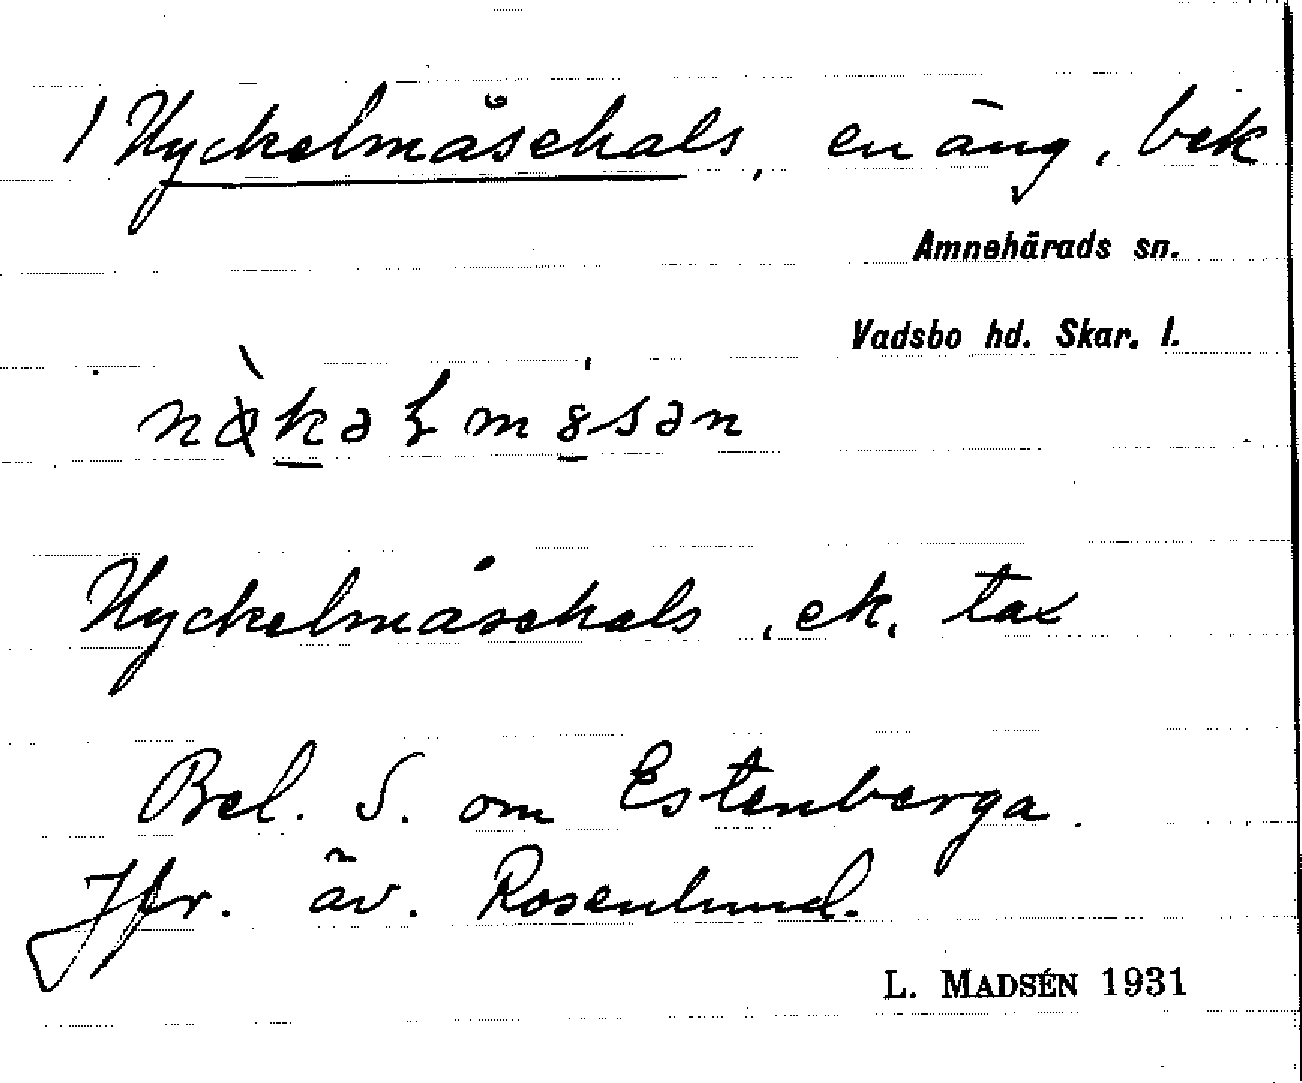 1 Nyckelmåsehals, en äng, bek
Amnehärads sn.
Vadsbo hd. Skar. l.
Nyckelmåsehals, ek. tax
Bel. S. om Estenberga.
Jfr. äv. Rosenlund.
L. MADSÉN 1931